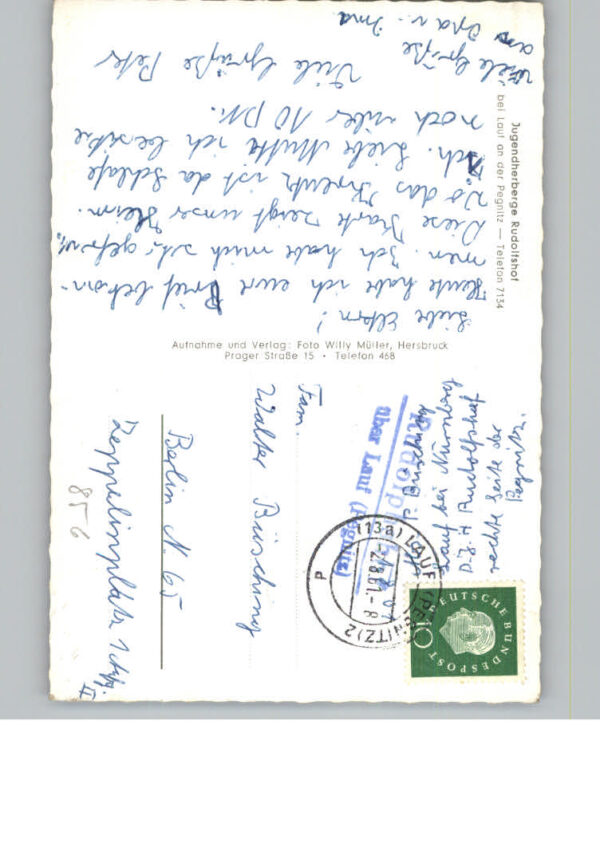 Jugendherberge Rudolfshof
bei Lauf an der Pegnitz — Telefon 7134
Liebe Eltern!
Heute habe ich euren Brief bekom-
men. Ich habe mich sehr gefreut.
Diese Karte zeigt unser Heim.
Wo das Kreuz ist da schlafe
ich. Liebe Mutti ich besitze
noch über 10 DM.
Viele Grüße Peter
Viele Grüße
an Oma u.
Aufnahme und Verlag: Foto Willy Müller, Hersbruck
Prager Straße 15 · Telefon 468
P. Büsching
Lauf bei Nürnberg
D.J.H Rudolfshof
rechte Seite der
Pegnitz.
Rudolphshof
über Lauf (Pegnitz)
(13a) LAUF (PEGNITZ) 2
-2.8.61.-8
P
DEUTSCHE BUNDESPOST
10
Fam.
Walter Büsching
Berlin N. 65
Zeppelinplatz
II
856